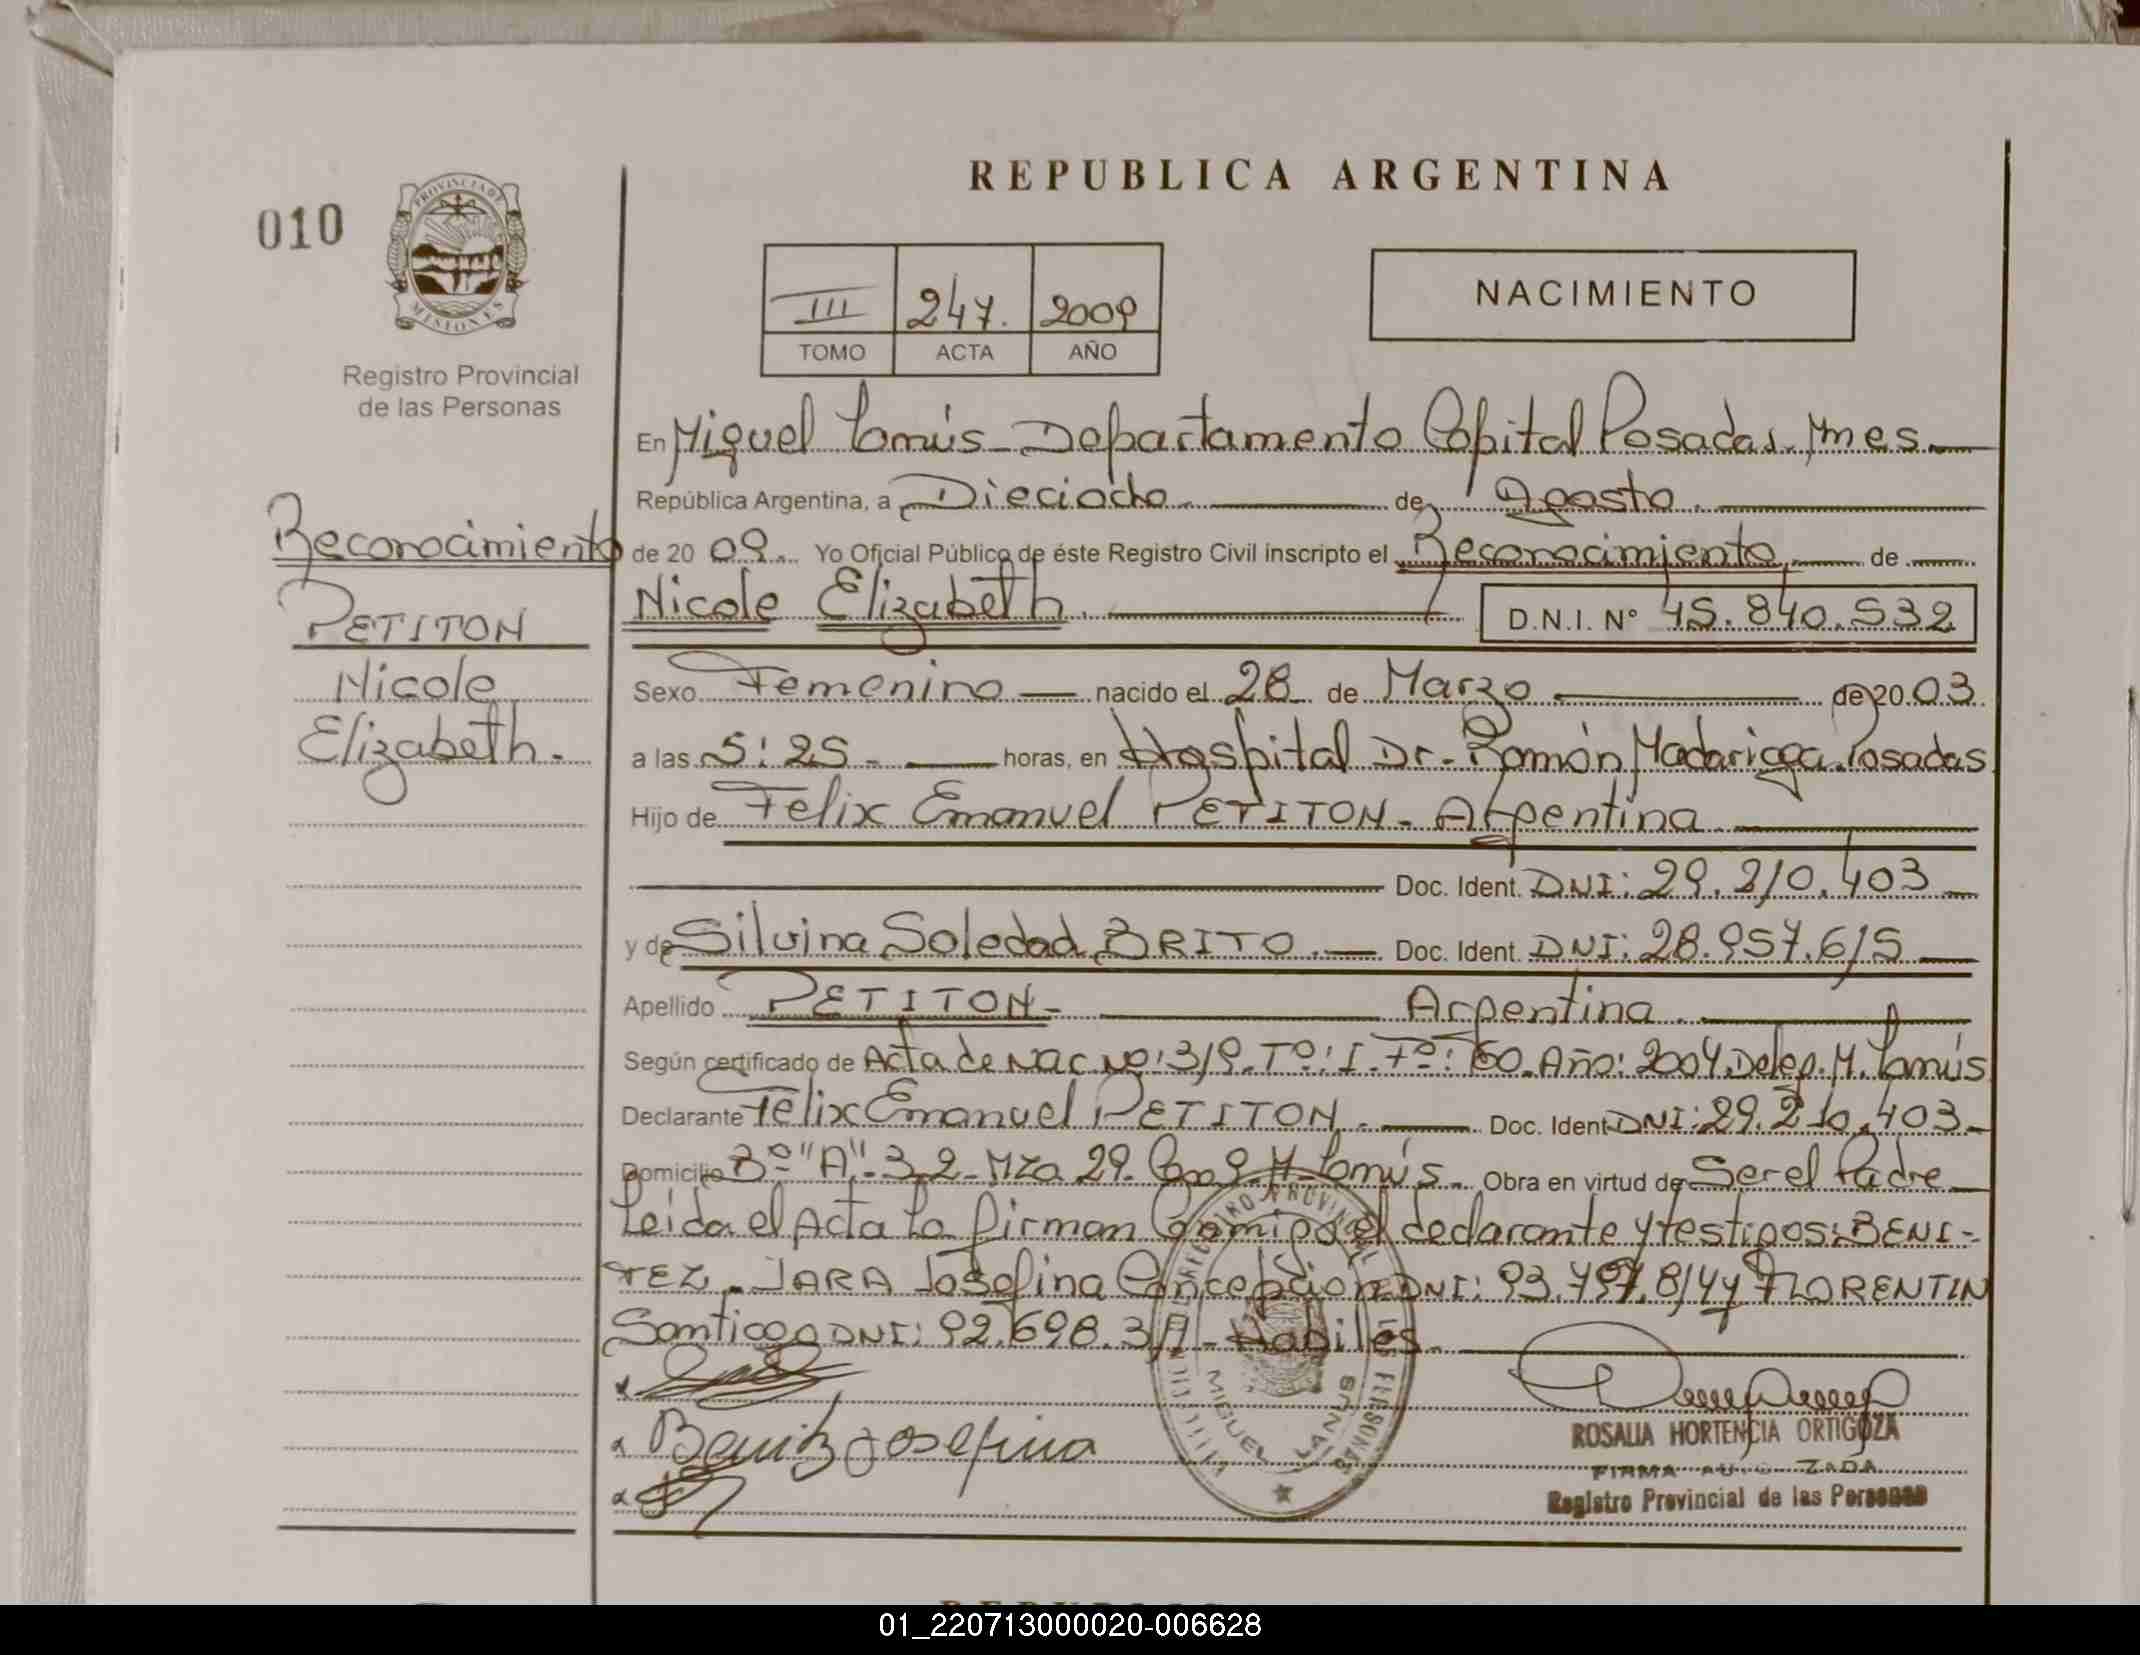 REPUBLICA ARGENTINA
010
PROVINCIA DE
MISIONES
Registro Provincial
de las Personas
III 247. 2009
TOMO ACTA AÑO
NACIMIENTO
En Miguel Lanús - Departamento Capital Posadas. Mnes.
República Argentina, a Dieciocho. de Agosto.
de 20 09. Yo Oficial Público de éste Registro Civil inscripto el Reconocimiento de
Nicole Elizabeth. D.N.I. Nº 45.840.532
Reconocimiento
PETITON
Nicole
Elizabeth.
Sexo Femenino nacido el 28 de Marzo de 20 03.
a las 5:25 - horas, en Hospital Dr. Ramón Madariaga. Posadas
Hijo de Felix Emanuel PETITON - Argentina
Doc. Ident. DNI: 29.210.403
y de Silvina Soledad BRITO. Doc. Ident. DNI: 28.957.615
Apellido PETITON - Argentina.
Según certificado de Acta de Nac Nº: 319. Tº: I. Fº: 160. Año: 2004. Deleg. M. Lanús
Declarante Felix Emanuel PETITON. Doc. Ident. DNI: 29.210.403
Domicilio Bº "A" 3.2 - Mza 29. M. Lanús. Obra en virtud de Ser el Padre
Leida el Acta la firman Conmigo el declarante y testigos: BENI-
TEZ - JARA Josefina Concepción DNI: 93.797.814 y FLORENTIN
Santiago DNI: 92.698. - Habiles.
Benitez Josefina
MIGUEL LANUS
ROSALIA HORTENCIA ORTIGOZA
FIRMA AUTORIZADA
Registro Provincial de las Personas
01_220713000020-006628